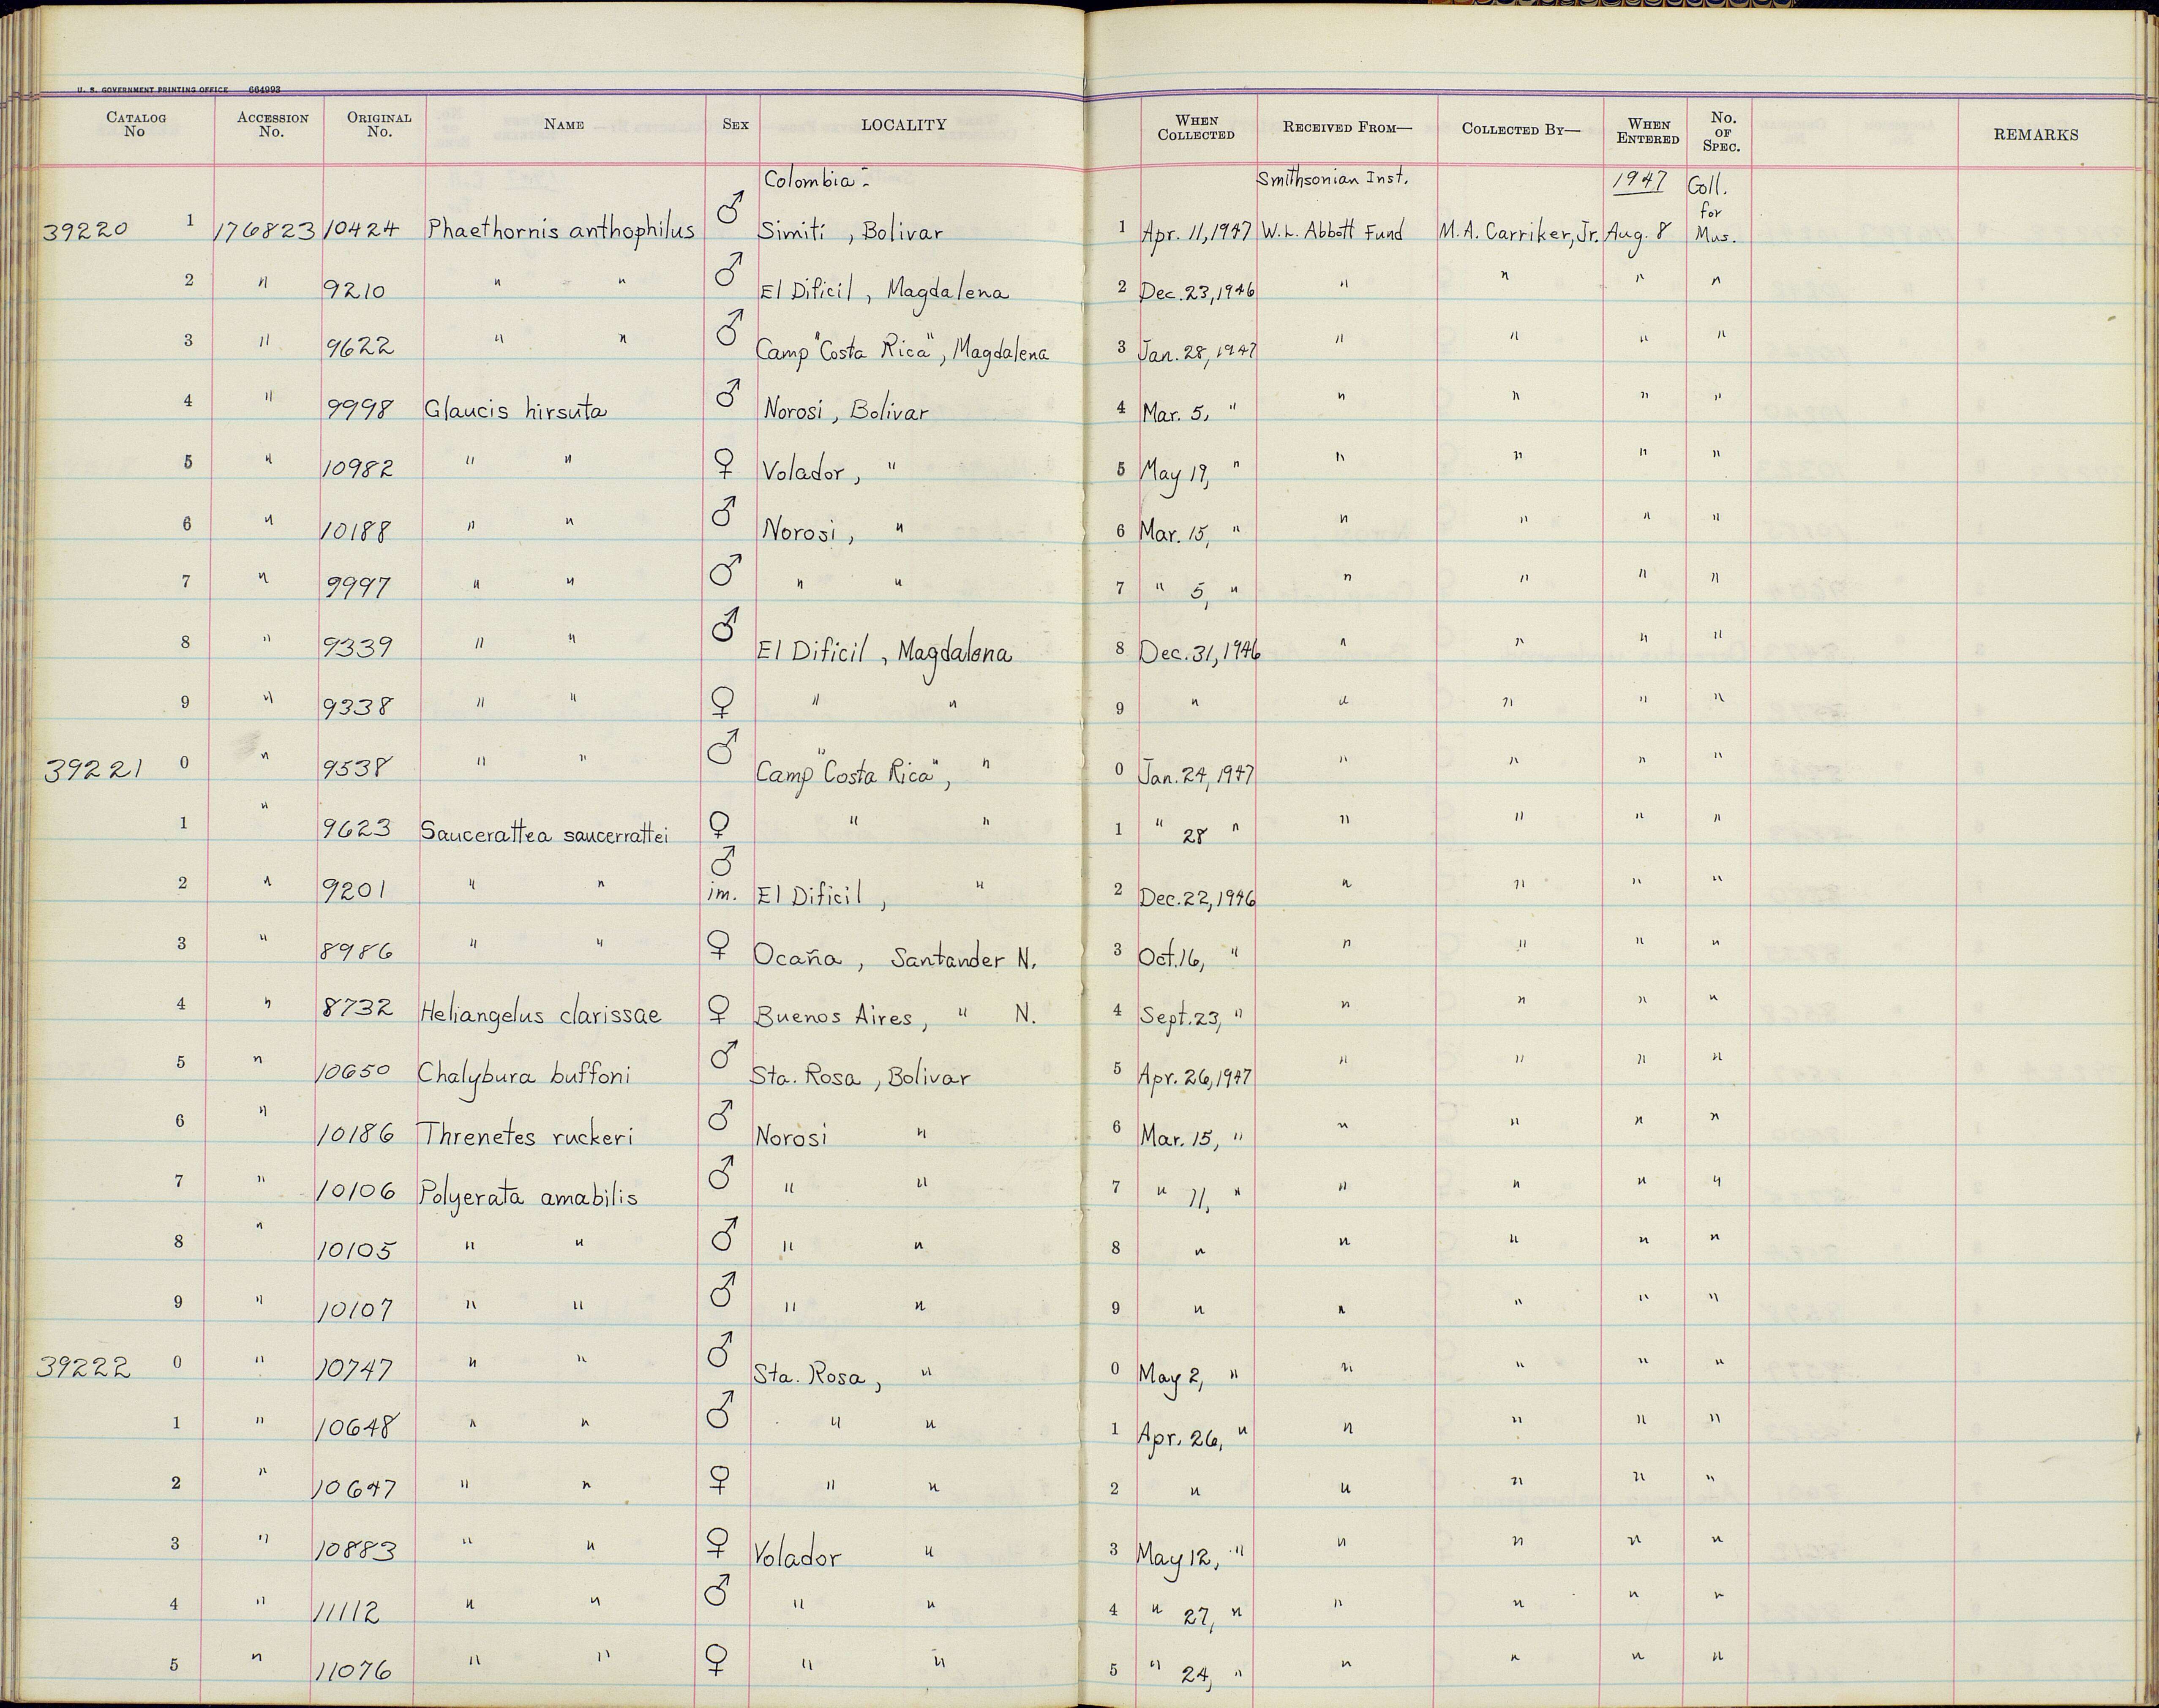 U. S. GOVERNMENT PRINTING OFFICE 664993
CATALOG No ACCESSION No. ORIGINAL No. NAME SEX LOCALITY WHEN COLLECTED RECEIVED FROM— COLLECTED BY— WHEN ENTERED No. OF SPEC. REMARKS
Colombia:- Smithsonian Inst. 1947 Coll. for
39220 1 176823 10424 Phaethornis anthophilus ♂ Simiti, Bolivar 1 Apr. 11, 1947 W.L. Abbott Fund M.A. Carriker, Jr. Aug. 8 Mus.
2 " 9210 " " ♂ El Dificil, Magdalena 2 Dec. 23, 1946 " " " "
3 " 9622 " " ♂ Camp "Costa Rica", Magdalena 3 Jan. 28, 1947 " " " "
4 " 9998 Glaucis hirsuta ♂ Norosi, Bolivar 4 Mar. 5, " " " " "
5 " 10982 " " ♀ Volador, " 5 May 19, " " " " "
6 " 10188 " " ♂ Norosi, " 6 Mar. 15, " " " " "
7 " 9997 " " ♂ " " 7 " 5, " " " " "
8 " 9339 " " ♂ El Dificil, Magdalena 8 Dec. 31, 1946 " " " "
9 " 9338 " " ♀ " " 9 " " " " "
39221 0 " 9538 " " ♂ Camp "Costa Rica", " 0 Jan. 24, 1947 " " " "
1 " 9623 Saucerattea saucerrattei ♀ " " 1 " 28 " " " " "
2 " 9201 " " ♂ im. El Dificil, " 2 Dec. 22, 1946 " " " "
3 " 8986 " " ♀ Ocaña, Santander N. 3 Oct. 16, " " " " "
4 " 8732 Heliangelus clarissae ♀ Buenos Aires, " N. 4 Sept. 23, " " " " "
5 " 10650 Chalybura buffoni ♂ Sta. Rosa, Bolivar 5 Apr. 26, 1947 " " " "
6 " 10186 Threnetes ruckeri ♂ Norosi " 6 Mar. 15, " " " " "
7 " 10106 Polyerata amabilis ♂ " " 7 " 11, " " " " "
8 " 10105 " " ♂ " " 8 " " " " "
9 " 10107 " " ♂ " " 9 " " " " "
39222 0 " 10747 " " ♂ Sta. Rosa, " 0 May 2, " " " " "
1 " 10648 " " ♂ " " 1 Apr. 26, " " " " "
2 " 10647 " " ♀ " " 2 " " " " "
3 " 10883 " " ♀ Volador " 3 May 12, " " " " "
4 " 11112 " " ♂ " " 4 " 27, " " " " "
5 " 11076 " " ♀ " " 5 " 24, " " " " "